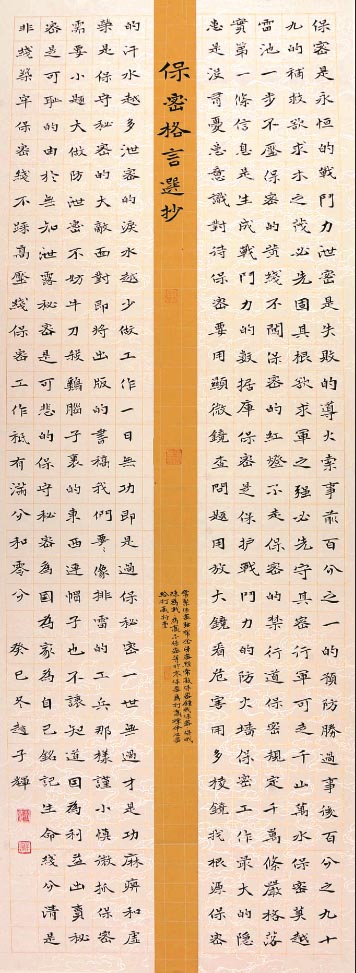 保密是永恒的戰鬥力泄密是失敗的導火索事前百分之一的預防勝過事後百分之九十
九的補救欲求木之茂必先固其根欲求軍之强必先守其密行軍可走千山萬水保密莫越
雷池一步不壓保密的黄线不闖保密的紅燈不走保密的禁行道保密規定千萬條嚴格落
實第一條信息是生成戰鬥力的数据庫保密是保护戰鬥力的防火墙保密工作最大的隱
患是没有憂患意識對待保密要用顯微鏡查問题用放大鏡看危害用多棱鏡找根源保密
保密格言選抄
的汗水越多泄密的淚水越少做工作一日無功即是過保秘密一世無過才是功麻痹和虚
榮是保守秘密的大敵面對即将出版的書稿我們要像排雷的工兵那樣謹小慎微抓保密
需要小題大做防泄密不妨牛刀殺鷄腦子裏的東西連帽子也不讓知道因為利益出賣秘
密是可耻的由於無知泄露秘密是可悲的保守秘密為國為家為自己銘記生命綫分清是
非綫築牢保密綫不踩高壓綫保密工作衹有滿分和零分 癸巳冬趙子輝